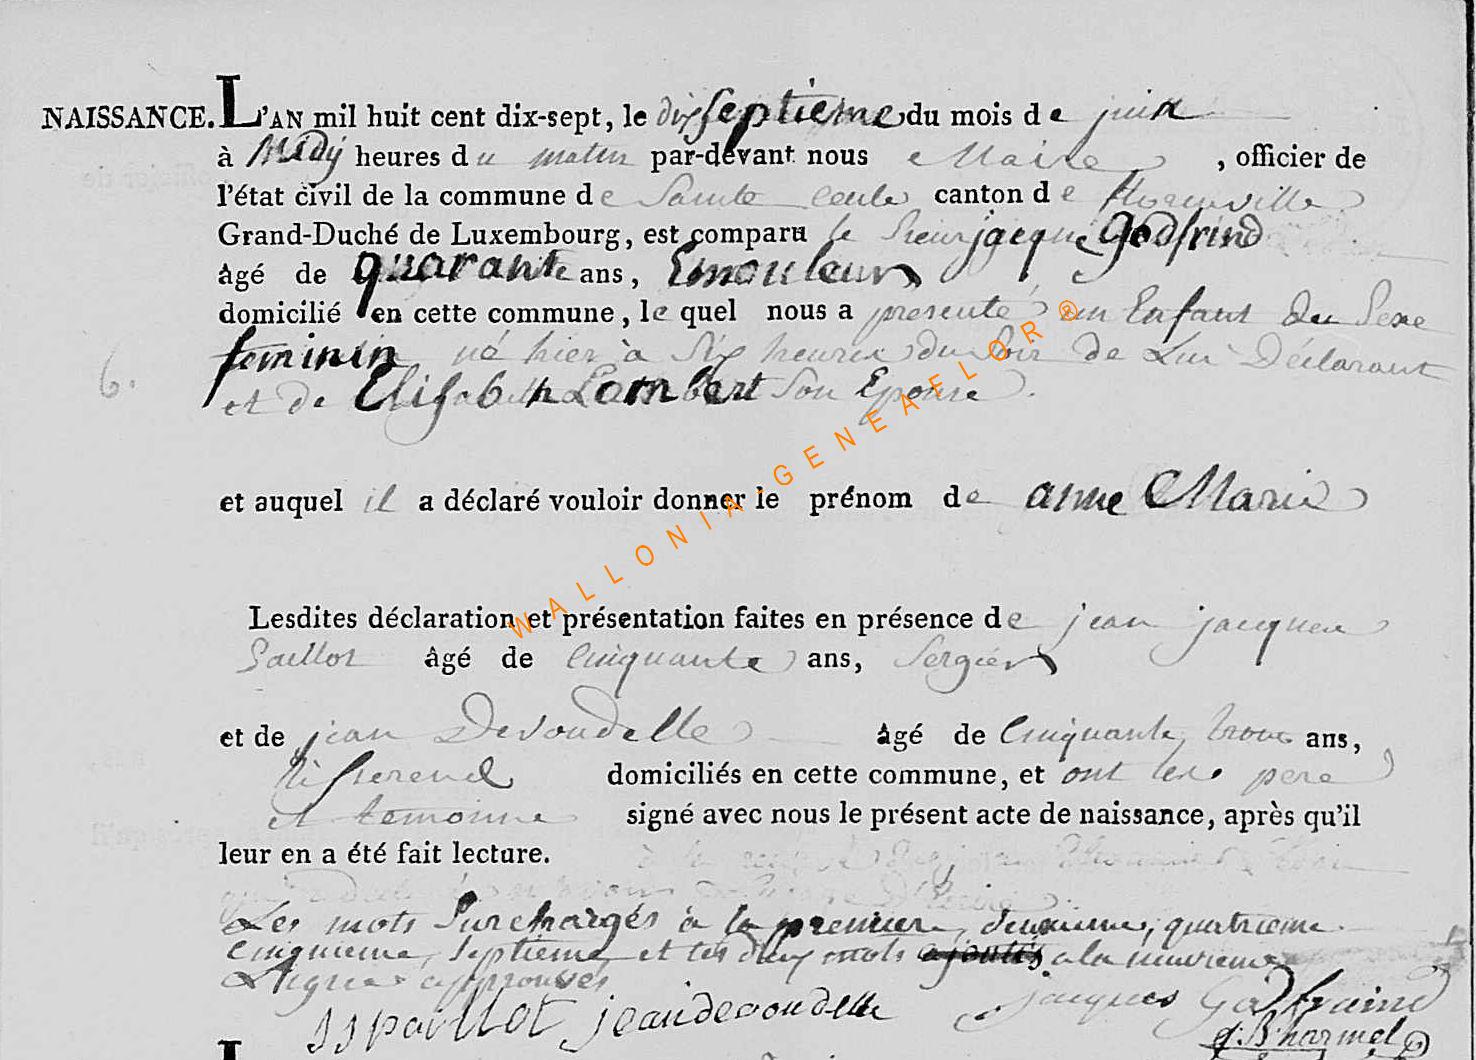 NAISSANCE. L'AN mil huit cent dix-sept, le dix septieme du mois de juin
à Midy heures du matin par-devant nous Maire , officier de
l'état civil de la commune de Sainte Cecile canton de florenville
Grand-Duché de Luxembourg, est comparu le Sieur jacque Godfrind
âgé de quarante ans, Emouleur
domicilié en cette commune, le quel nous a presenté un Enfant du Sexe
feminin né hier à Six heures du Soir de Lui Déclarant
et de Elisabeth Lambert Son Epouse.
6.
et auquel il a déclaré vouloir donner le prénom de anne Marie
Lesdites déclaration et présentation faites en présence de jean jacques
Paillot âgé de Cinquante ans, Sergier
et de jean Devoudelle âgé de Cinquante trois ans,
tisserend domiciliés en cette commune, et ont les pere
et temoins signé avec nous le présent acte de naissance, après qu'il
leur en a été fait lecture.
Les mots Surchargés à la premier, deuxieme, quatrieme
Cinquieme, Septieme et les deux mots ajoutés a la neuvieme
Lignes approuvés
JJ paillot jean devoudelle jacques Godfraind
WALLONIA GENEAFLOR ®